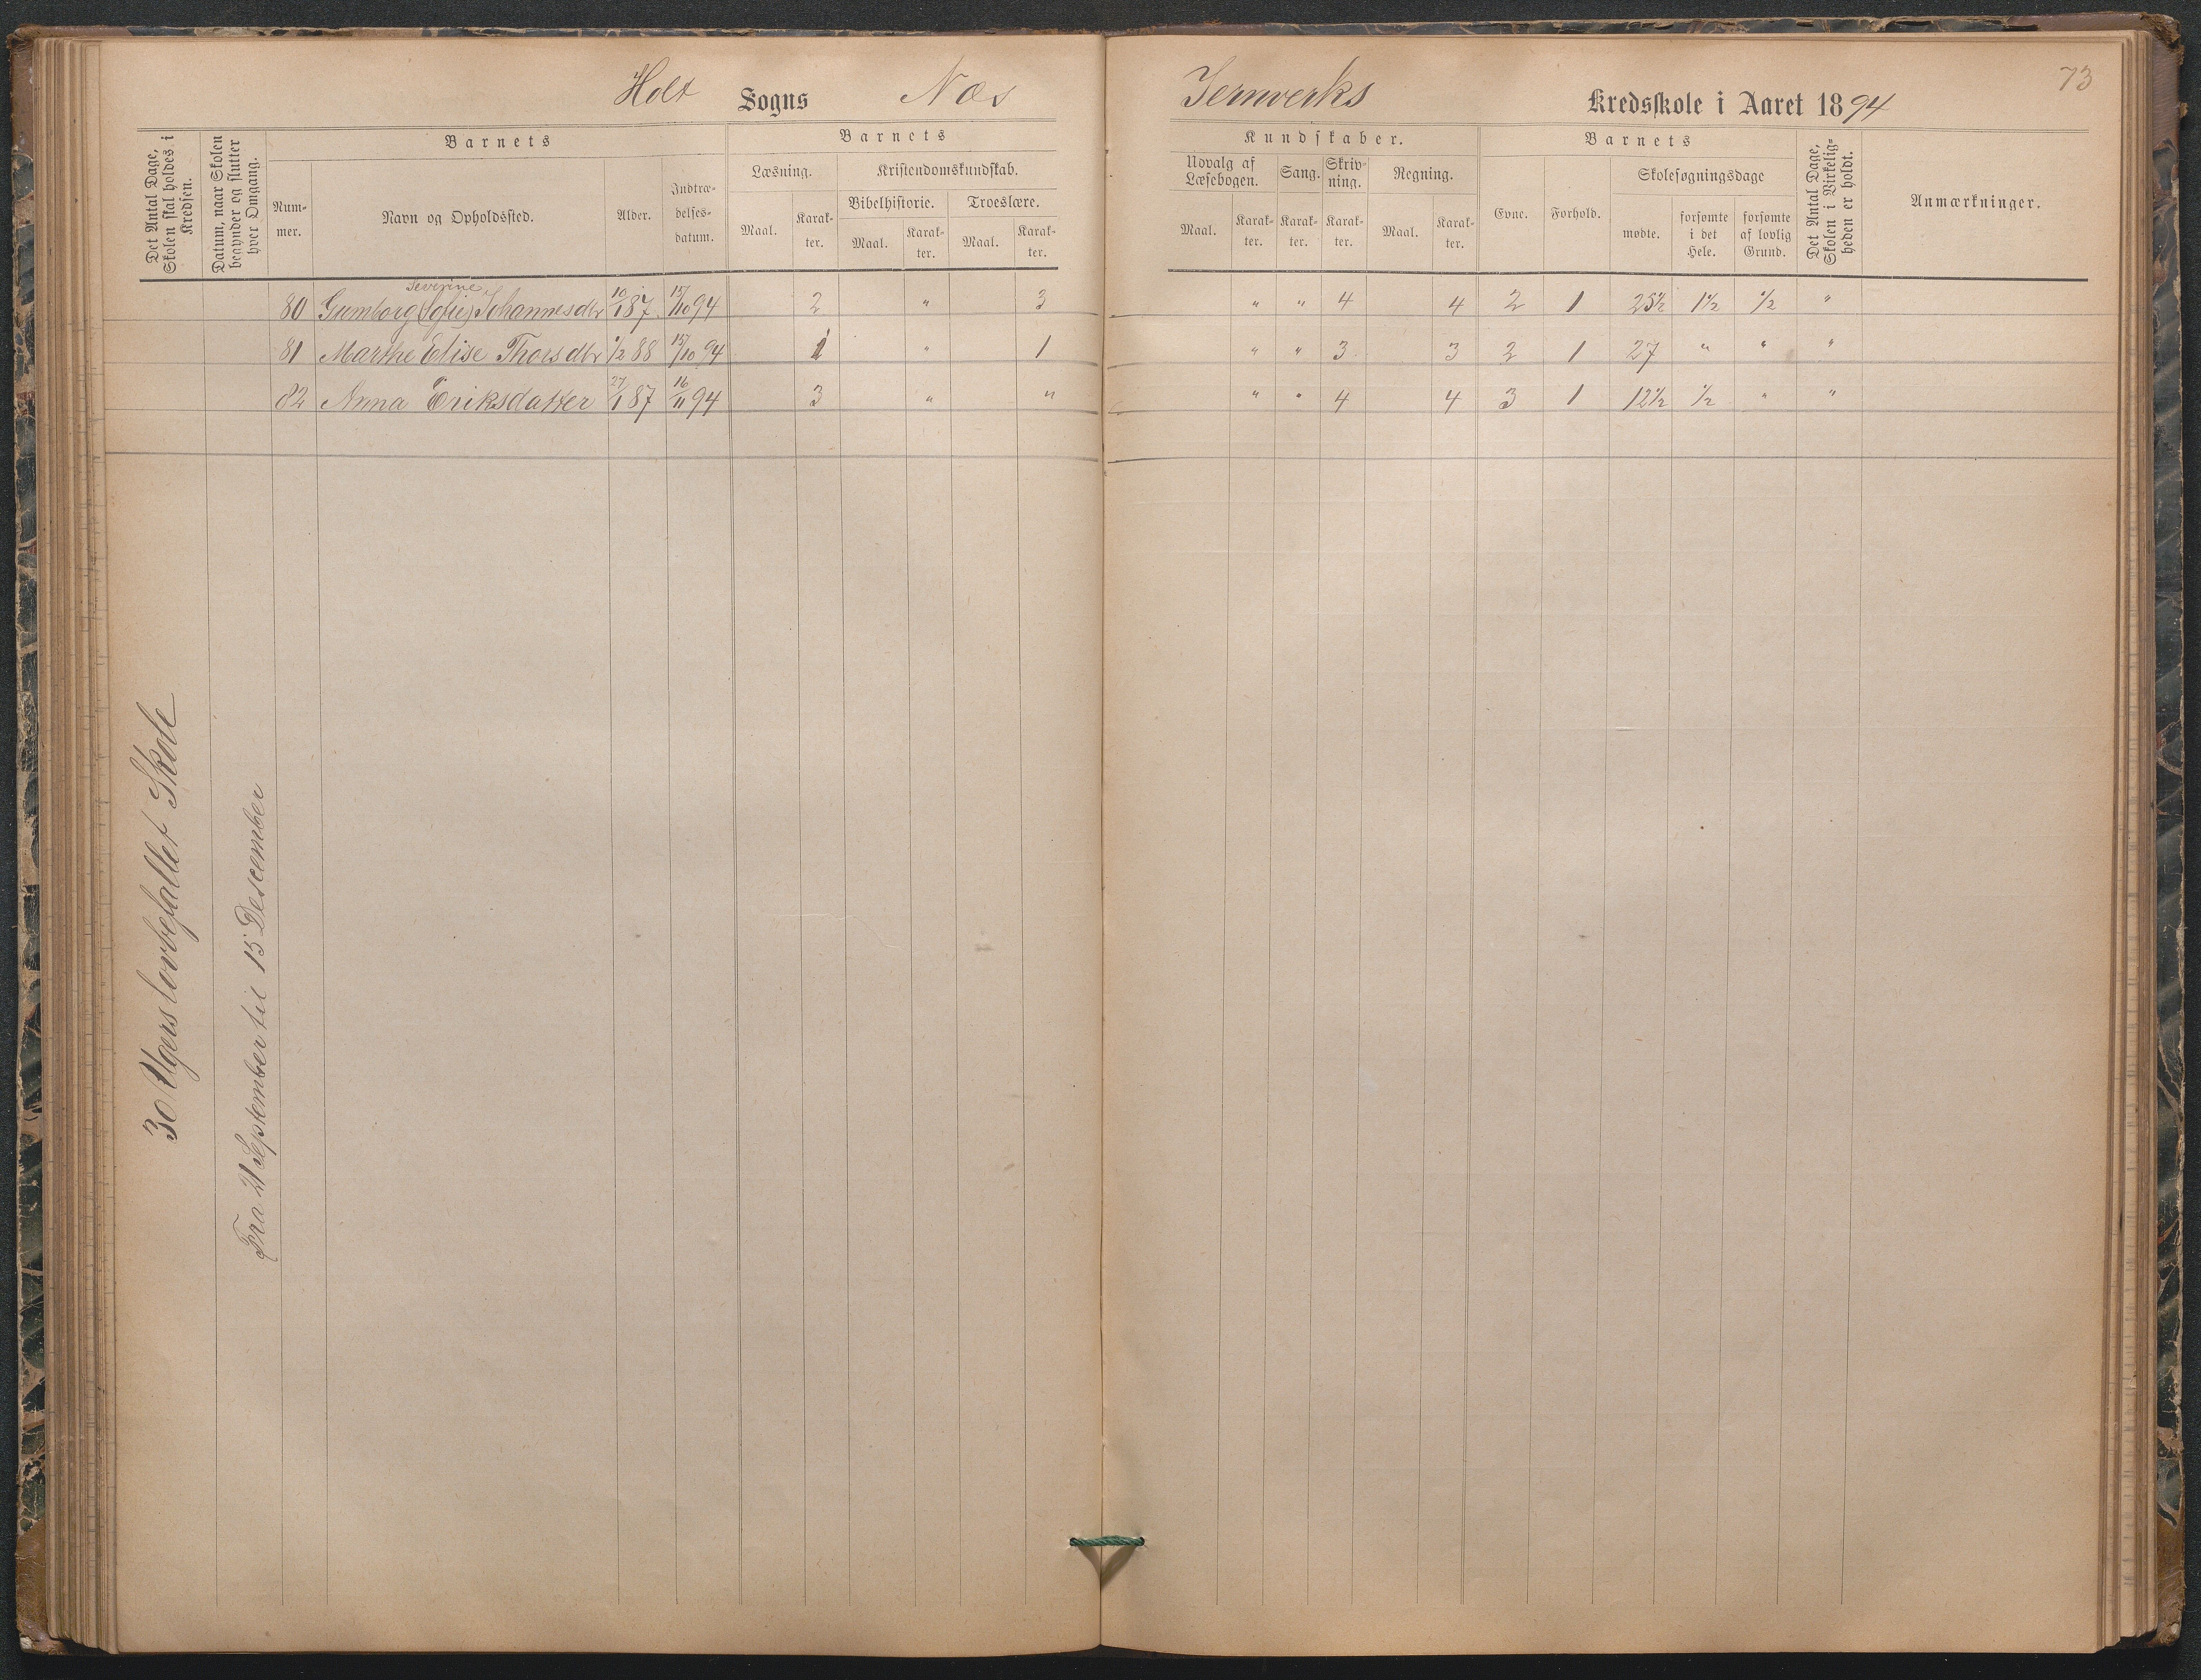 73
Holt Sogns Næs Jernverks Kredsskole i Aaret 1894
Det Antal Dage, Skolen skal holdes i Kredsen.
Datum, naar Skolen begynder og slutter hver Omgang.
Barnets
Num-
mer.
Navn og Opholdssted.
Alder.
Indtræ-
delses-
datum.
Barnets
Læsning.
Maal.
Karak-
ter.
Kristendomskundskab.
Bibelhistorie.
Maal.
Karak-
ter.
Troeslære.
Maal.
Karak-
ter.
Kundskaber.
Udvalg af
Læsebogen.
Maal.
Karak-
ter.
Sang.
Karak-
ter.
Skriv-
ning.
Karak-
ter.
Regning.
Maal.
Karak-
ter.
Barnets
Evne.
Forhold.
Skolesøgningsdage
mødte.
forsømte
i det
Hele.
forsømte
af lovlig
Grund.
Det Antal Dage, Skolen i Virkelig-heden er holdt.
Anmærkninger.
Severine
80 Gumborg (Sofie) Johannesdtr 10/1 87 15/10 94 2 " 3 " " 4 4 2 1 25½ 1½ ½ "
81 Marthe Elise Thorsdtr 1/2 88 15/10 94 1 " 1 " " 3 3 2 1 27 " " "
82 Anna Eriksdatter 27/1 87 16/11 94 3 " " " " 4 4 3 1 12½ ½ " "
30 Ugers lovbefallet Skole
Fra 21 September til 15 Descember